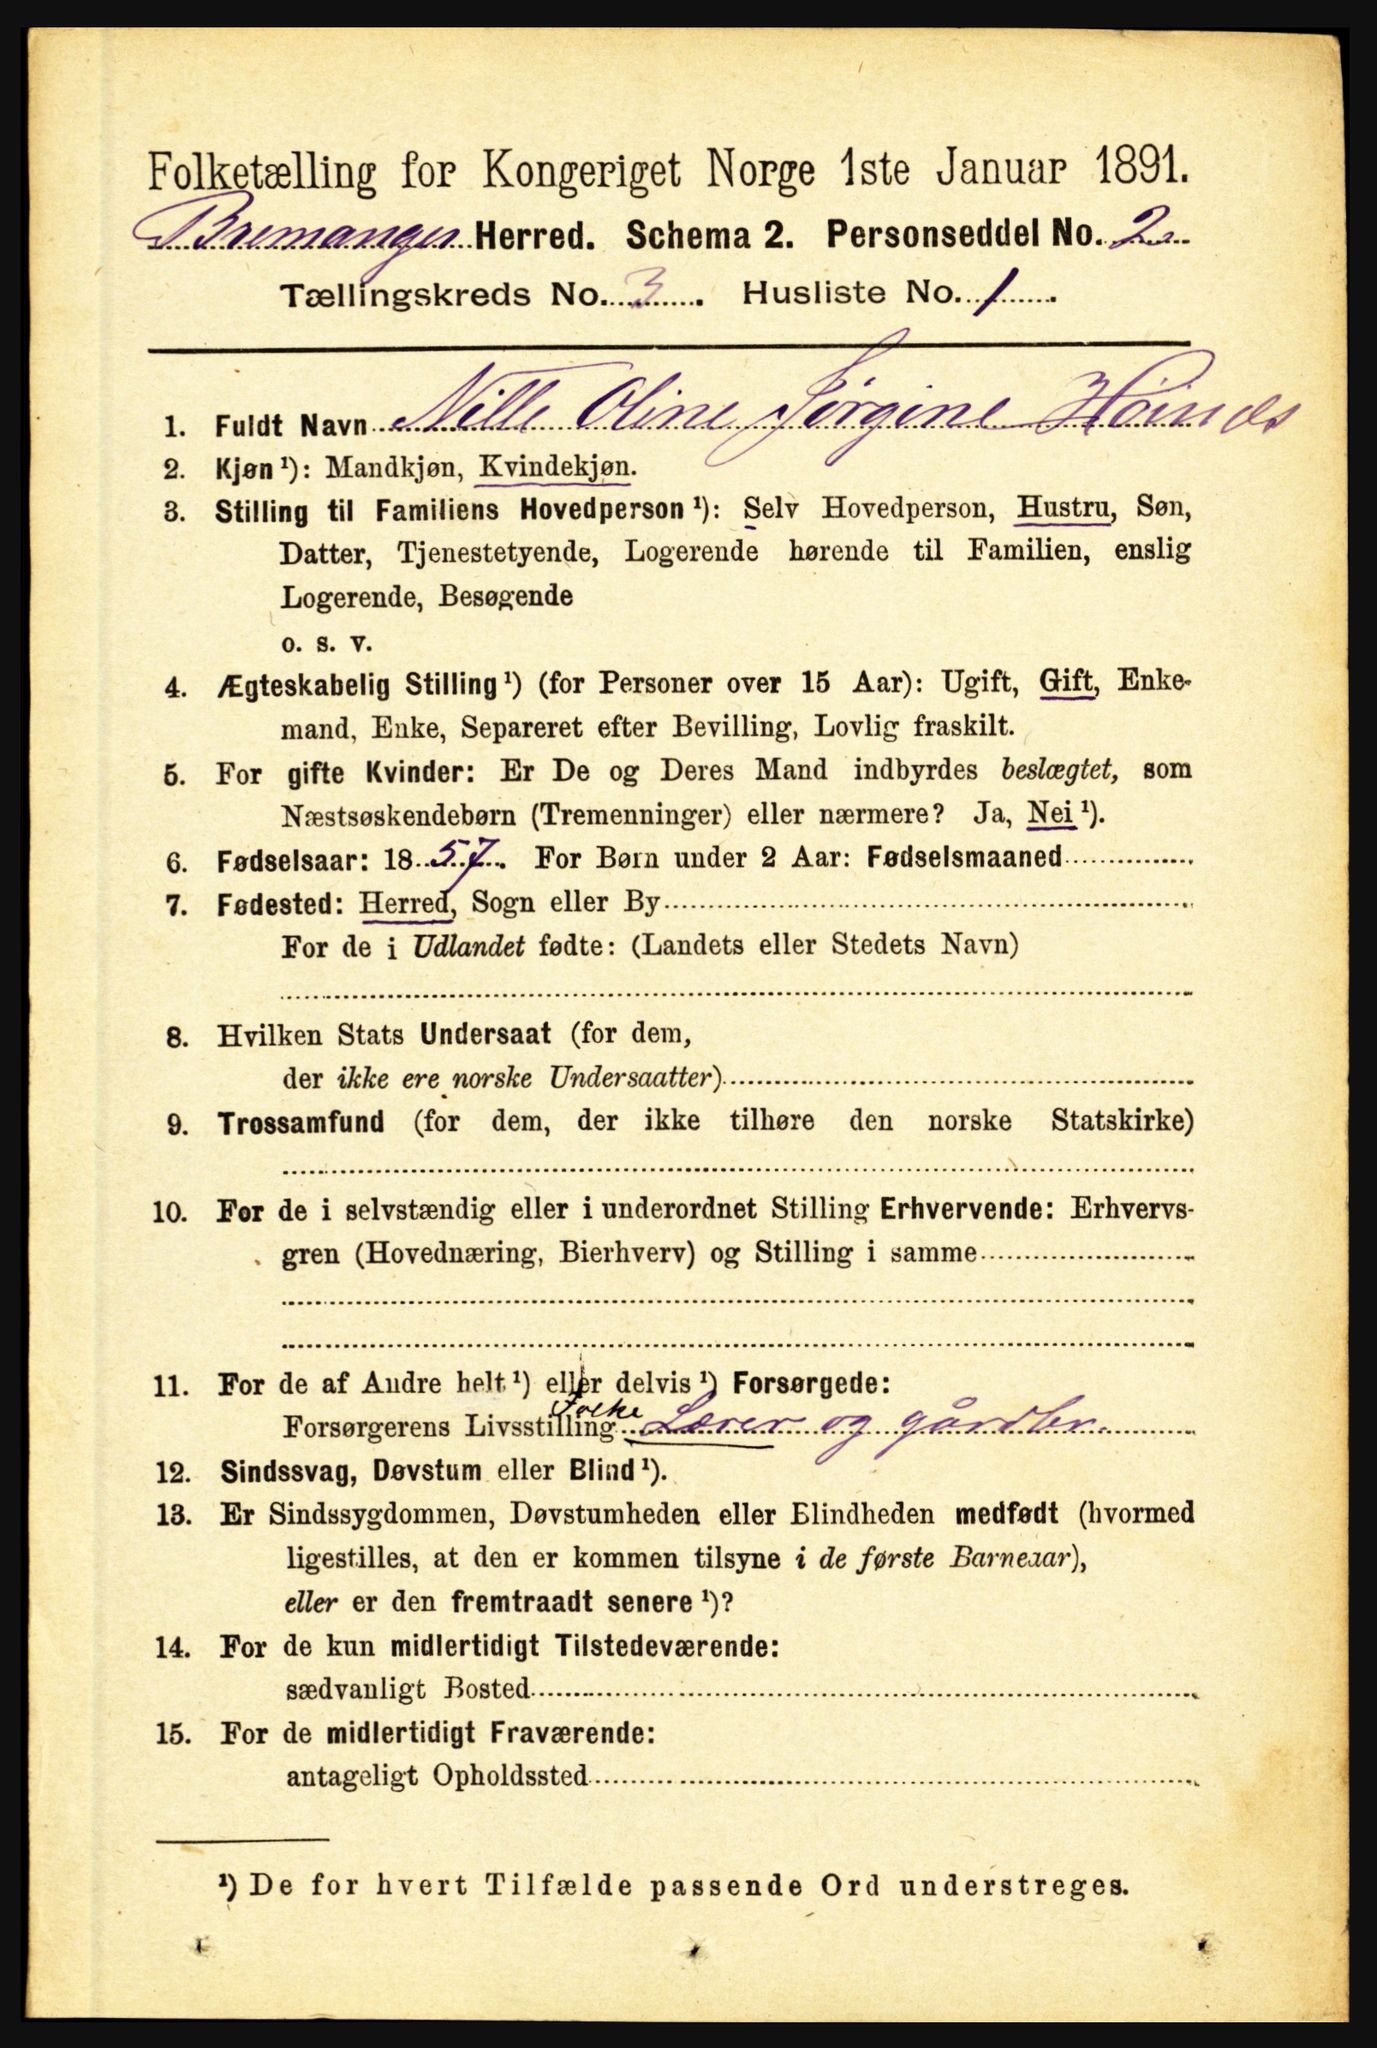 Folketælling for Kongeriget Norge 1ste Januar 1891.
Bremanger Herred. Schema 2. Personseddel No. 2
Tællingskreds No. 3. Husliste No. 1.
1. Fuldt Navn Nille Oline Jørgine
2. Kjøn ¹): Mandkjøn, Kvindekjøn.
3. Stilling til Familiens Hovedperson ¹): Selv Hovedperson, Hustru, Søn,
Datter, Tjenestetyende, Logerende hørende til Familien, enslig
Logerende, Besøgende
o. s. v.
4. Ægteskabelig Stilling ¹) (for Personer over 15 Aar): Ugift, Gift, Enke-
mand, Enke, Separeret efter Bevilling, Lovlig fraskilt.
5. For gifte Kvinder: Er De og Deres Mand indbyrdes beslægtet, som
Næstsøskendebørn (Tremenninger) eller nærmere? Ja, Nei ¹).
6. Fødselsaar: 1857. For Børn under 2 Aar: Fødselsmaaned
7. Fødested: Herred, Sogn eller By
For de i Udlandet fødte: (Landets eller Stedets Navn)
8. Hvilken Stats Undersaat (for dem,
der ikke ere norske Undersaatter)
9. Trossamfund (for dem, der ikke tilhøre den norske Statskirke)
10. For de i selvstændig eller i underordnet Stilling Erhvervende: Erhvervs-
gren (Hovednæring, Bierhverv) og Stilling i samme
11. For de af Andre helt ¹) eller delvis ¹) Forsørgede:
Folke
Forsørgerens Livsstilling Lærer og gårdbr.
12. Sindssvag, Døvstum eller Blind ¹).
13. Er Sindssygdommen, Døvstumheden eller Blindheden medfødt (hvormed
ligestilles, at den er kommen tilsyne i de første Barneaar),
eller er den fremtraadt senere ¹)?
14. For de kun midlertidigt Tilstedeværende:
sædvanligt Bosted
15. For de midlertidigt Fraværende:
antageligt Opholdssted
¹) De for hvert Tilfælde passende Ord understreges.